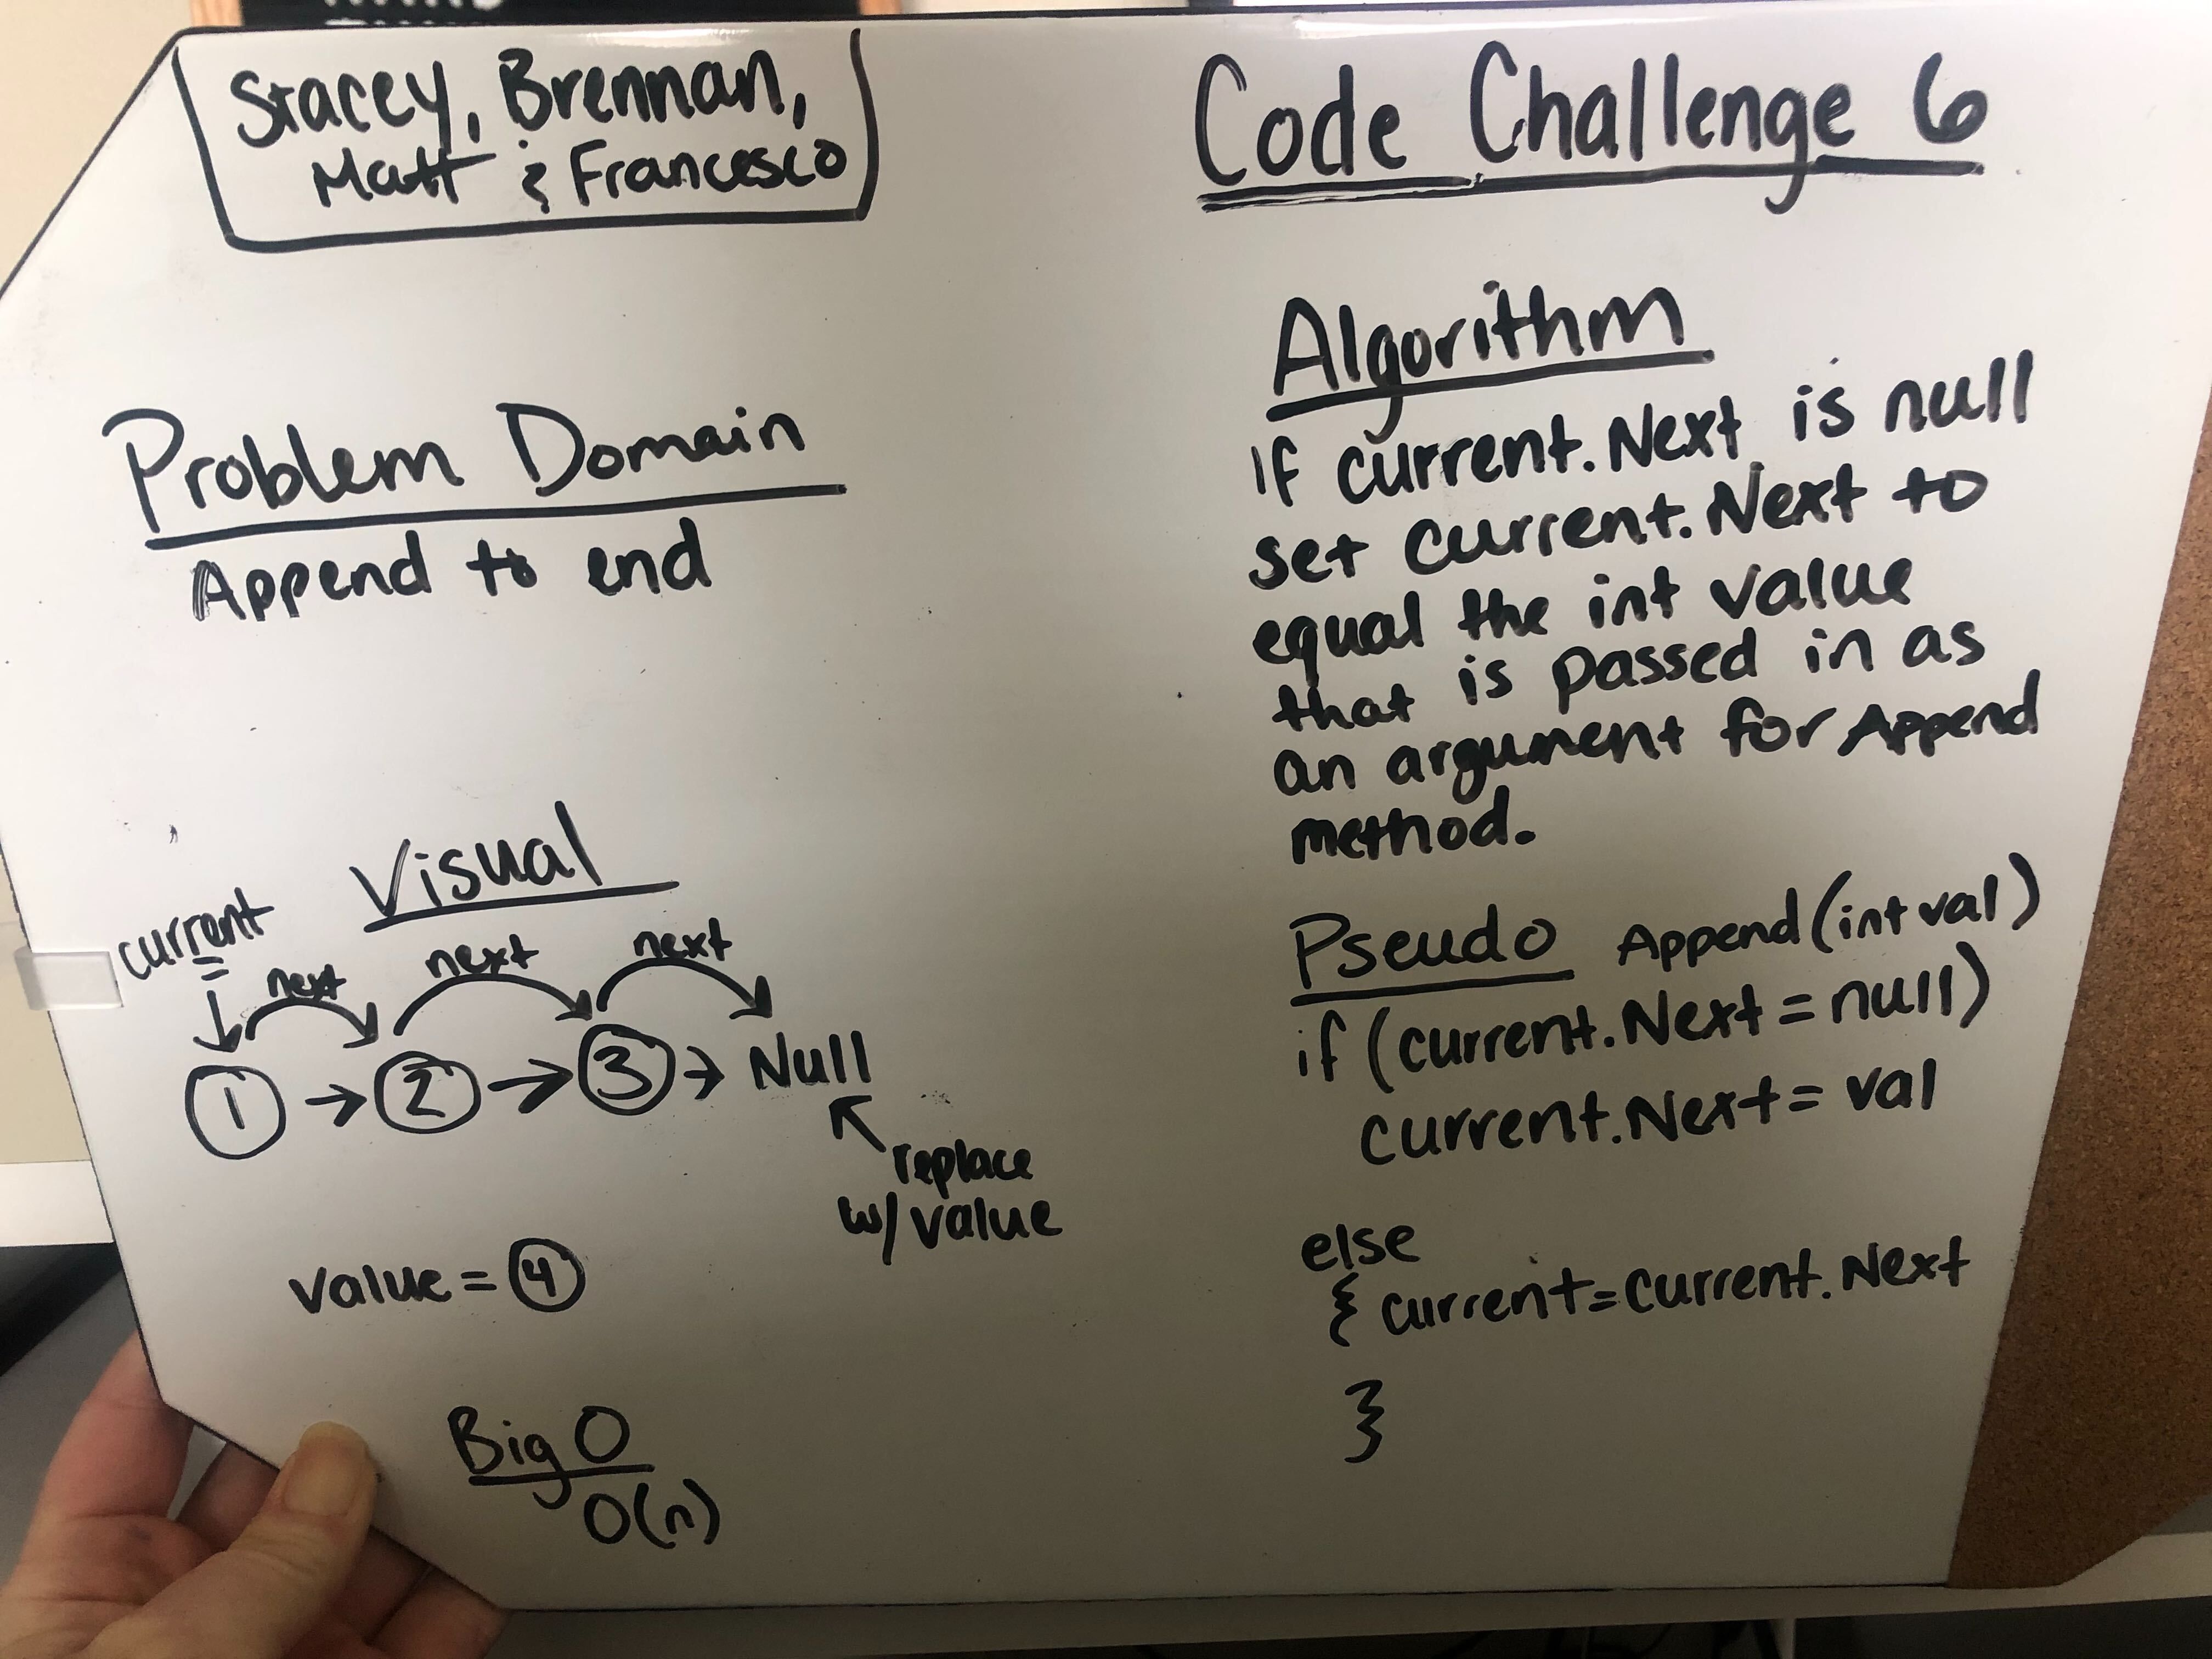 Stacey, Brennan,
Matt & Francesco
Code Challenge 6
Problem Domain
Append to end
Visual
current
=
next
next
next
1 → 2 → 3 → Null
replace
w/ value
value = 4
Big O
O(n)
Algorithm
If current.Next is null
set current.Next to
equal the int value
that is passed in as
an argument for Append
method.
Pseudo Append(int val)
if (current.Next = null)
current.Next = val
else
{ current = current.Next
}